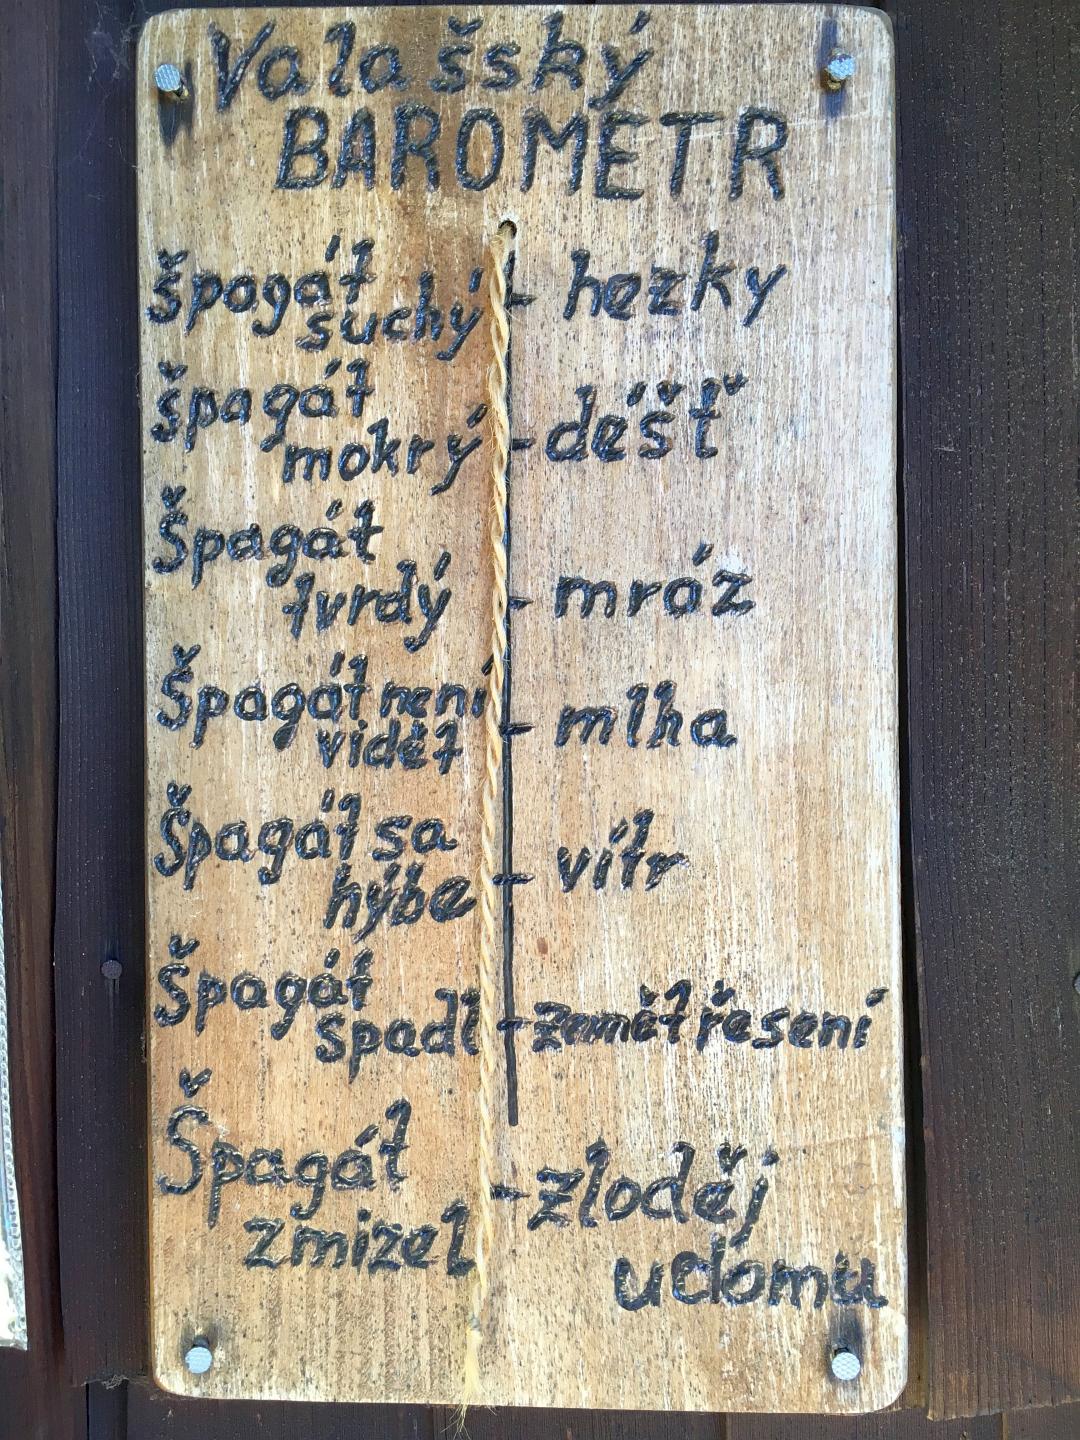 Valašský
BAROMETR
Špagát suchý - hezky
Špagát mokrý - déšť
Špagát tvrdý - mráz
Špagát není vidět - mlha
Špagát sa hýbe - vítr
Špagát spadl - zemětřesení
Špagát zmizel - zloděj u domu